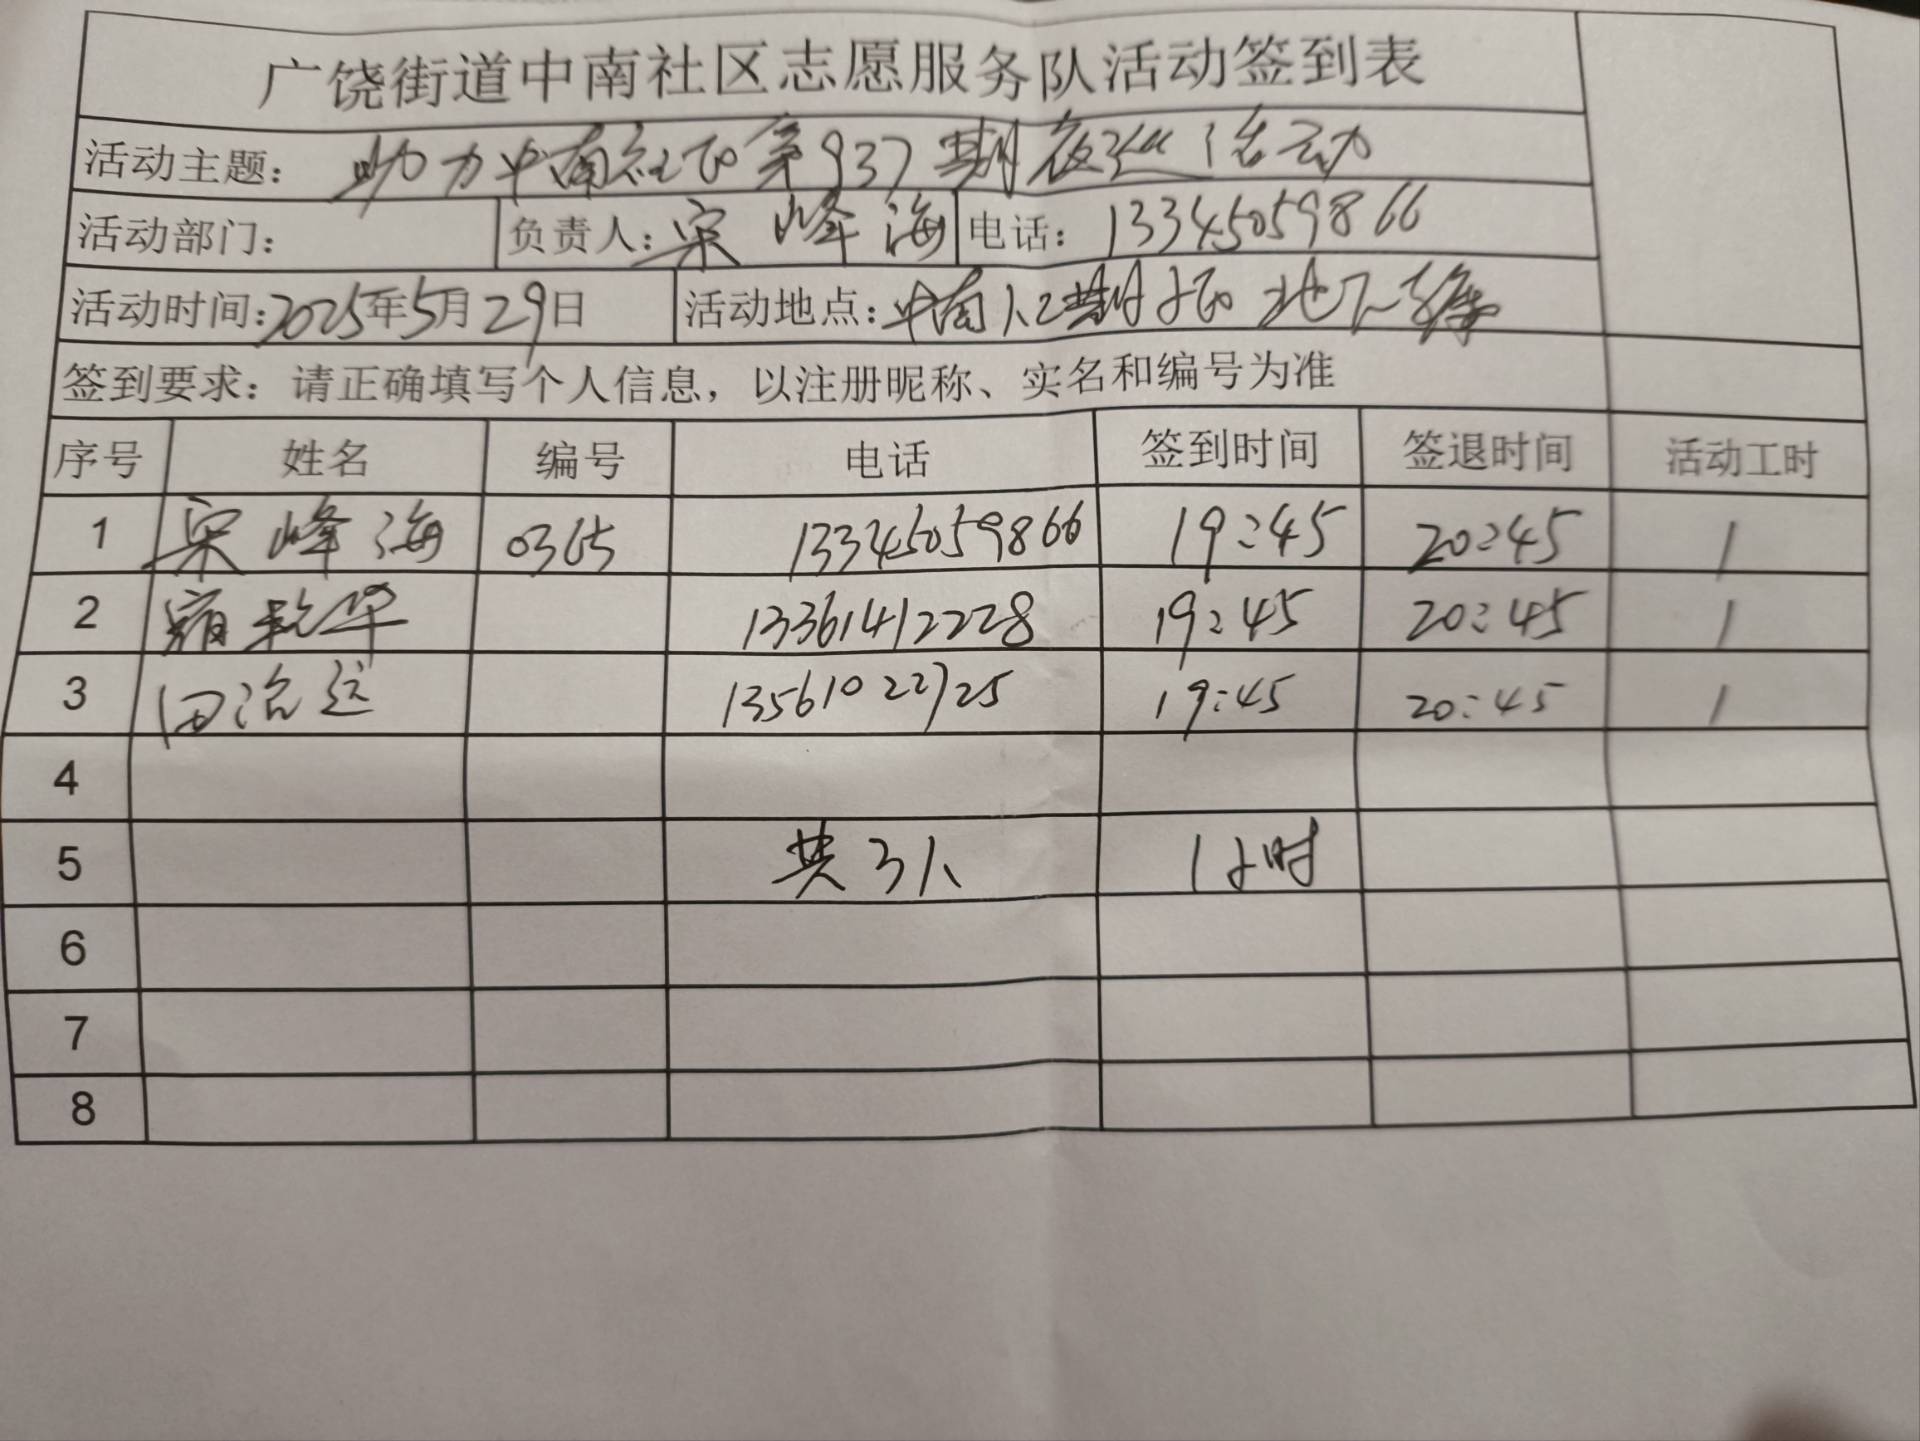 广饶街道中南社区志愿服务队活动签到表
活动主题: 助力中南社区第937期夜巡活动
活动部门: 负责人: 宋峰海 电话: 13345059866
活动时间: 2025年5月29日 活动地点: 中南 期小区地下车库
签到要求: 请正确填写个人信息，以注册昵称、实名和编号为准
序号 姓名 编号 电话 签到时间 签退时间 活动工时
1 宋峰海 0365 13345059866 19:45 20:45 1
2 华 13361412228 19:45 20:45 1
3 田治远 13561022725 19:45 20:45 1
4
5 共3人 1小时
6
7
8